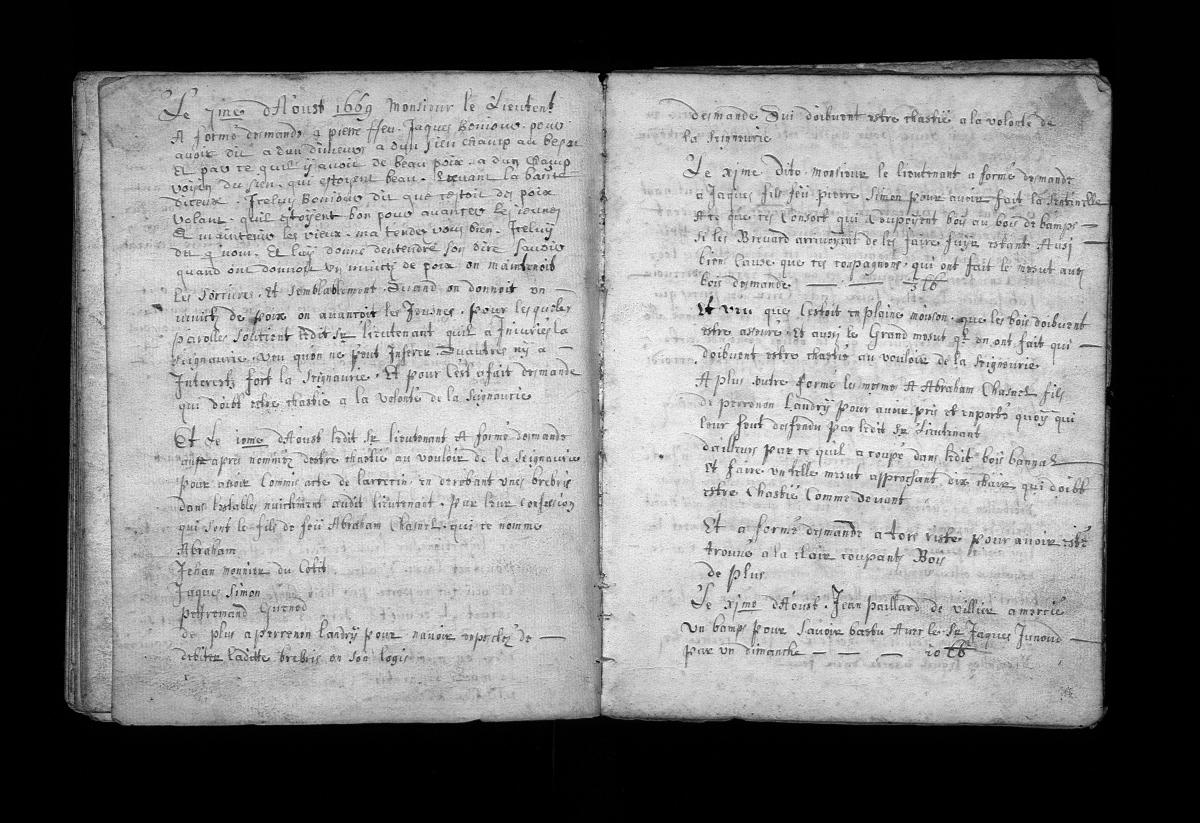 Le 7me d'Aoust 1669 Monsieur le Lieutent
A formé desmande a pierre ffeu Jaques Bonjour pour
avoir dit a d'un dimeurs a d'un sien champ au
Et par ce quil y avoit de beau poix a d'un champ
voysin du sien, qui estoyent beau. Levant la
dimeux. Iceluy Bonjour dit que cestoit des poix
volant quil estoyent bon pour avancer le jeunes
Et maintenir les vieux, ma tendes vous bien. Iceluy
dit q nom. Et luy donne dentendre son dire Savoir
quand ont donnoit un muict de poix on maintenoit
les sorciere, Et semblablement Quand on donnoit un
muict de poix on avancoit les Jeusnes, pour lesqueles
parolles soutient ledit Sr lieutenant quil a Injuries la
seignaurie, veu quon ne peut Inferer Quautres ny a
Interestz fort la Seignaurie. Et pour cest a fait desmande
qui doibt estre chastie a la volonté de la Seignaurie
Et Le 10me d'Aoust ledit Sr lieutenant A formé desmande
aux apres nommez destre chastié au vouloir de la Seignaurie
pour avoir Commis acte de larrecin en derobant unes brebis
dans lestables nuictment audit lieutenant. Par leur confession
qui sont le fils de feu Abraham Chasnel qui ce nomme
Abraham
Jehan monnier du
Jaques Simon
petremand Guenod
de plus a perrenon landry pour navoir empeschez de
debiter ladite brebis en son logis
desmande Qui doibvent estre chastié a la volonté de
la Seigneurie
Le xjme dito monsieur le lieutenant a formé desmande
a Jaques fils feu pierre Simon pour avoir fait la sentinelle
A ce que ces Consort qui Coupoyent bois au bois de bamps
si les Brevard arrivoyent de les faire fuyr estant Ausi
bien Cause que ces compagnons qui ont fait le mesut aux
bois desmande
Et veu que lestoit en plaine moison que les bois doibvent
estre assure, Et aussi le Grand mesut qz en ont fait qui
doibvent estre chastié au vouloir de la Seigneurie
A plus outre formé les mesme A Abraham Chasnel fils
de perrenon Landry pour avoir pris et enporté quoy qui
leur feut desfendu par ledit Sr Lieutenant
dailleurs par ce quil a coupé dans ledit bois bannal
Et faire un telle mesut approchant dix chair qui doibt
estre Chastié Comme devant
Et a formé desmande a tort viste pour avoir esté
trouvé a la clair coupants Bois
de plus
Le xjme d'Aoust. Jean paillard de villier a mercié
un bamps pour Savoir batu Avec le Sr Jaques Junod
par un dimanche